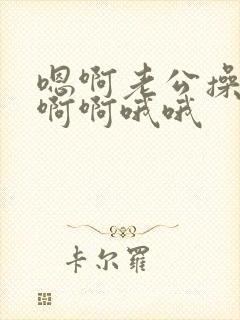 嗯啊老公操
啊啊哦哦
卡尔罗